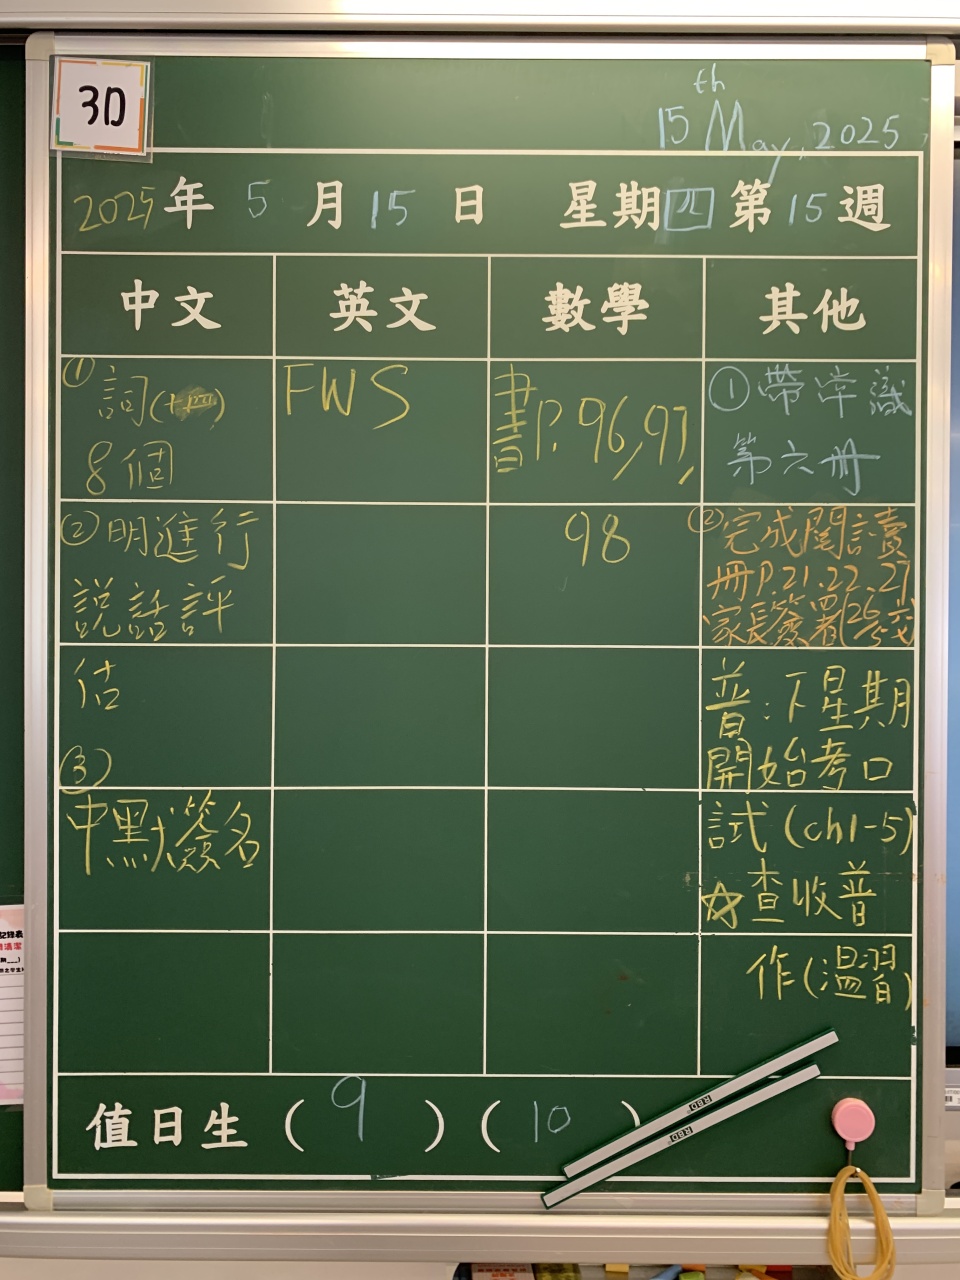 3D
15th May, 2025
2025年 5 月 15 日 星期四 第 15 週
中文 英文 數學 其他
① 詞
8個
② 明進行
説話評
估
③
中默簽名
FWS
書P.96,97,
98
① 帶常識
第六册
② 完成閱讀
册P.21.22.27
家長簽署(26/5交)
普:下星期
開始考口
試(ch1-5)
☆查收普
作(溫習)
值日生 ( 9 ) ( 10 )
RBD
RBD
記錄表
清潔